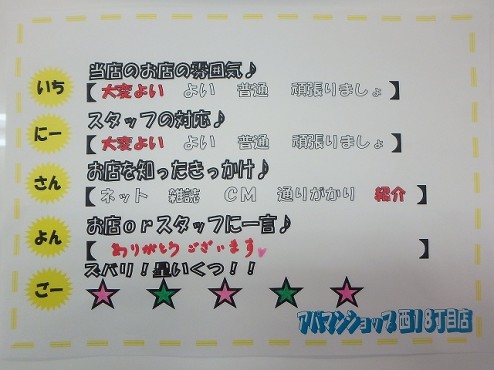 いち 当店のお店の雰囲気♪
【 大変よい よい 普通 頑張りましょ 】
にー スタッフの対応♪
【 大変よい よい 普通 頑張りましょ 】
さん お店を知ったきっかけ♪
【 ネット 雑誌 CM 通りがかり 紹介 】
よん お店orスタッフに一言♪
【 ありがとうございます♥ 】
ごー ズバリ！星いくつ！！
★ ★ ★ ★ ★
アパマンショップ西18丁目店